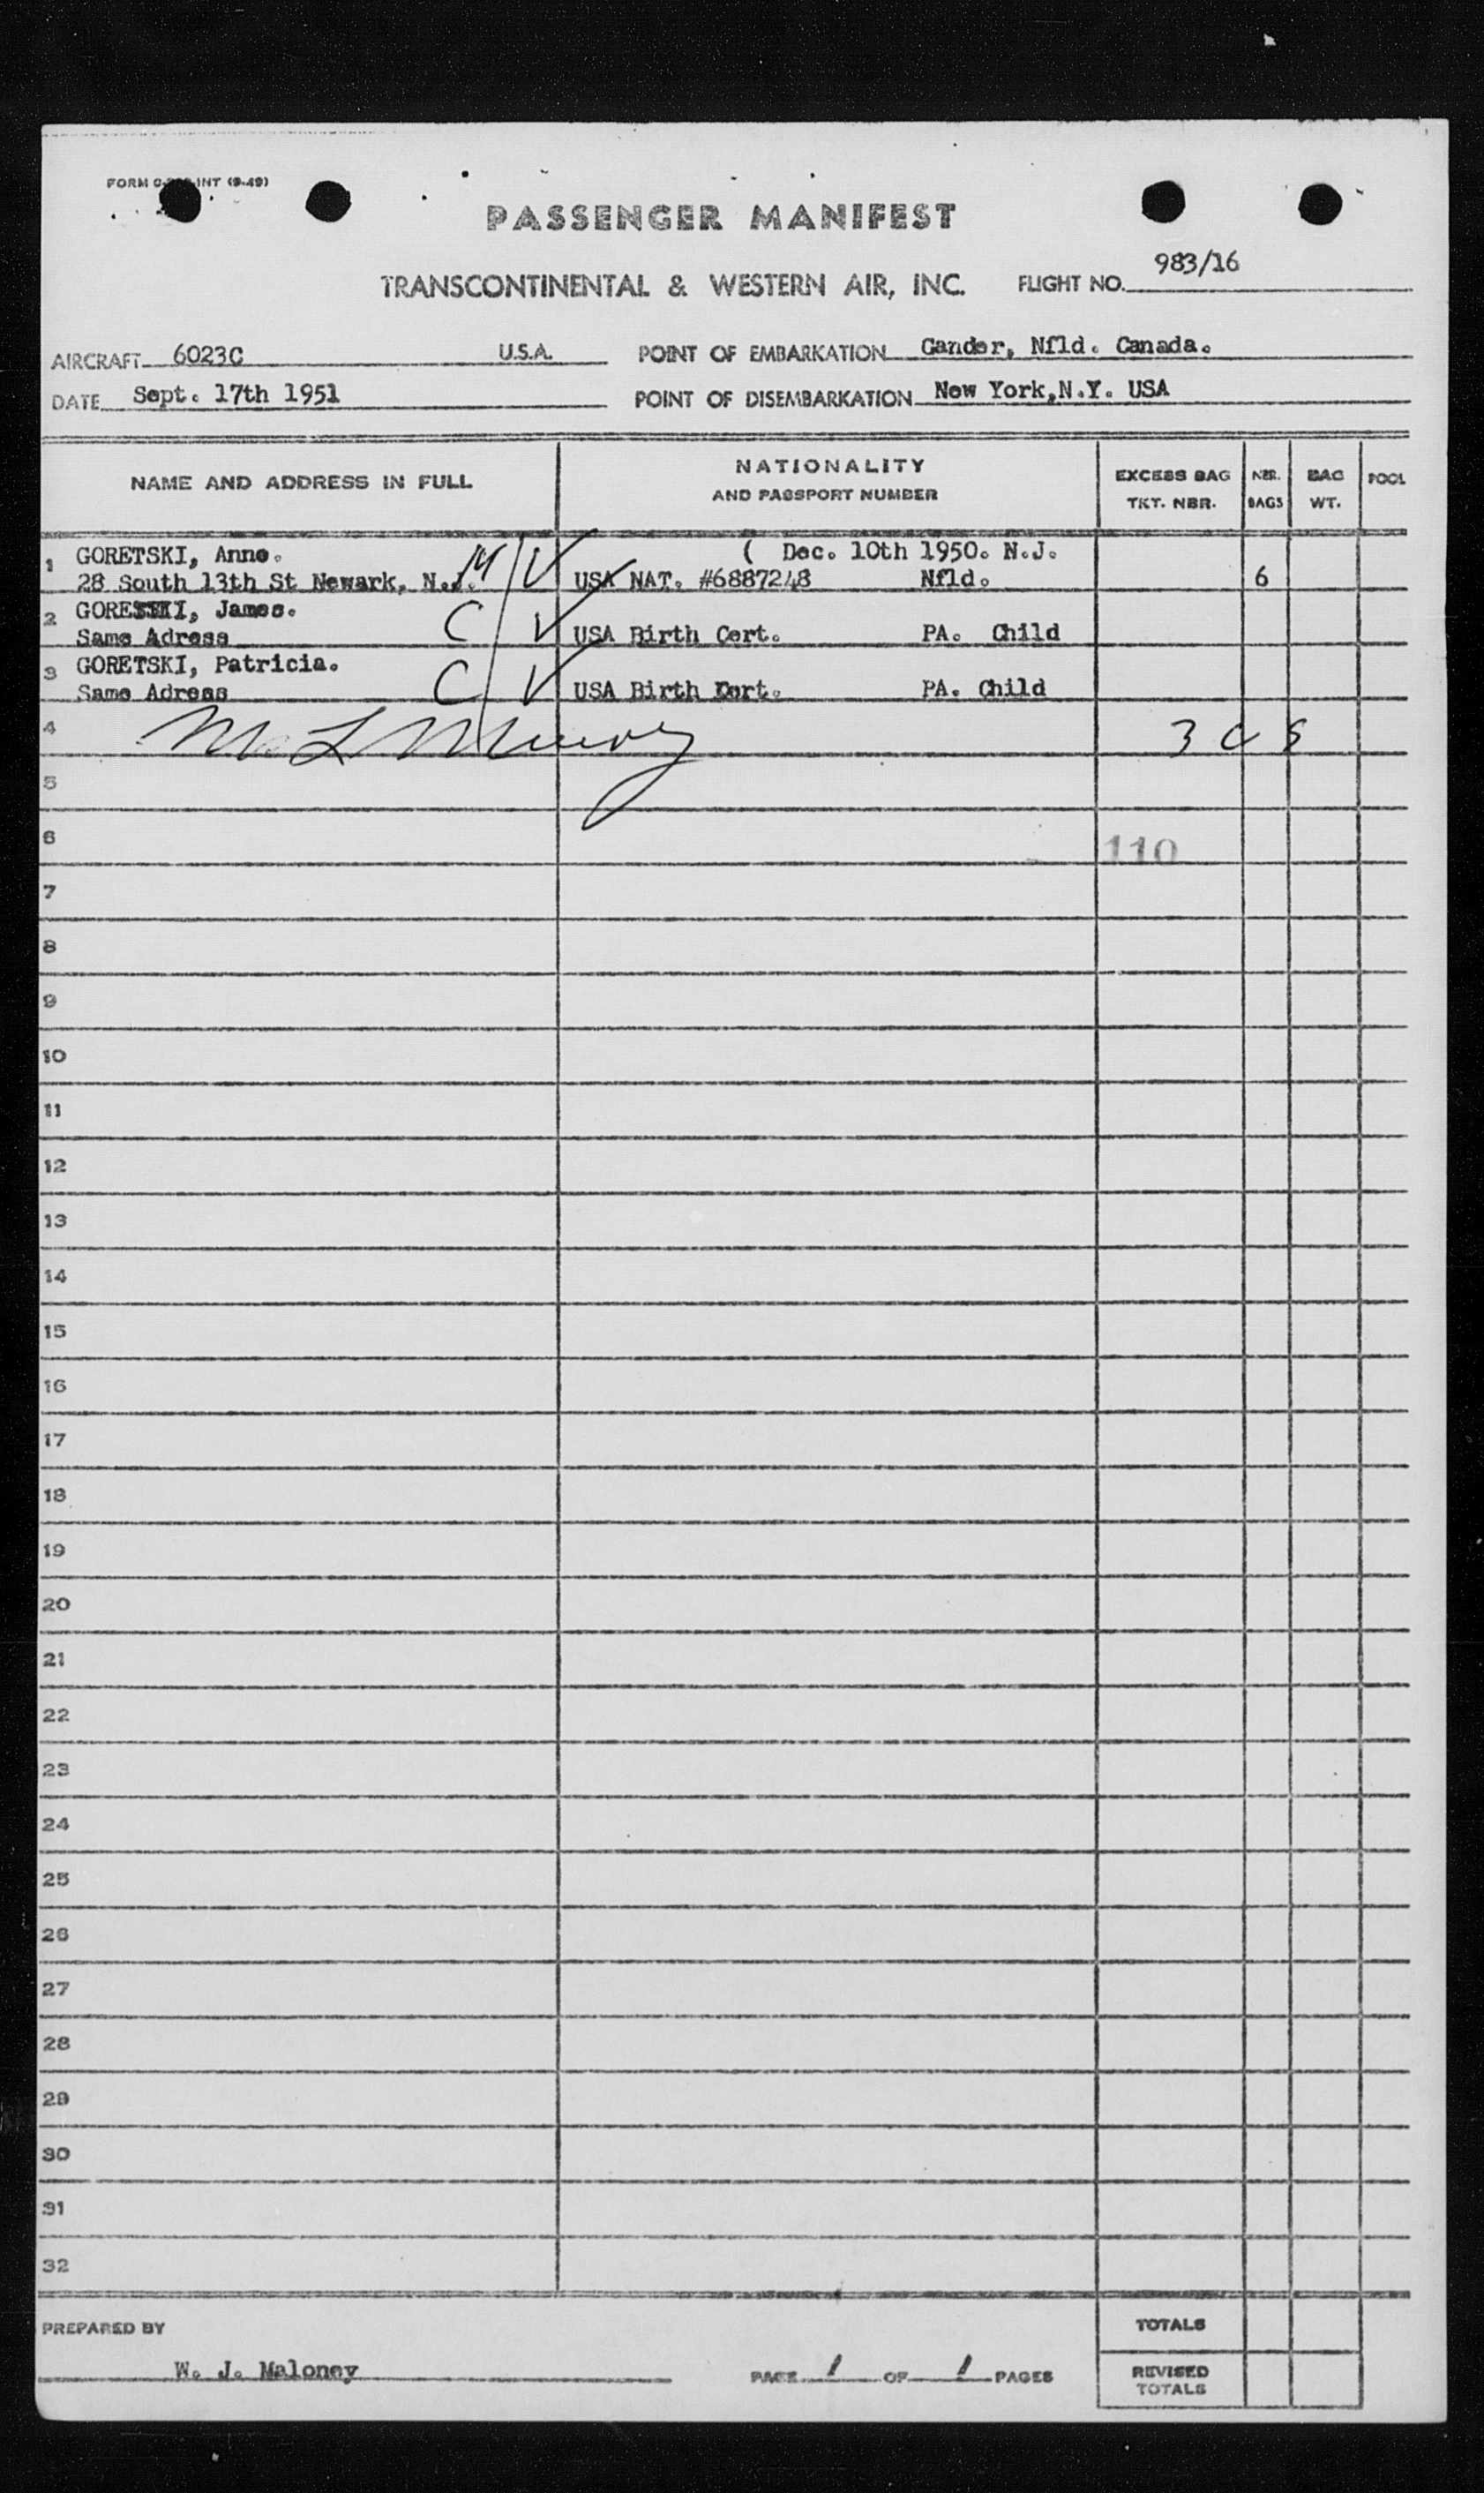 FORM C- INT (9-49)
PASSENGER MANIFEST
TRANSCONTINENTAL & WESTERN AIR, INC. FLIGHT NO. 983/16
AIRCRAFT 6023C U.S.A. POINT OF EMBARKATION Gander, Nfld. Canada.
DATE Sept. 17th 1951 POINT OF DISEMBARKATION New York,N.Y. USA
NAME AND ADDRESS IN FULL NATIONALITY AND PASSPORT NUMBER EXCESS BAG TKT. NBR. NBR. BAGS BAG WT. POOL
1 GORETSKI, Anne. ( Dec. 10th 1950. N.J.
28 South 13th St Newark, N.J. M V USA NAT. #6887248 Nfld. 6
2 GORETSKI, James.
Same Adress C V USA Birth Cert. PA. Child
3 GORETSKI, Patricia.
Same Adress C V USA Birth Cert. PA. Child
4 3 C S
5
6 110
7
8
9
10
11
12
13
14
15
16
17
18
19
20
21
22
23
24
25
26
27
28
29
30
31
32
PREPARED BY TOTALS
W. J. Maloney PAGE 1 OF 1 PAGES REVISED TOTALS